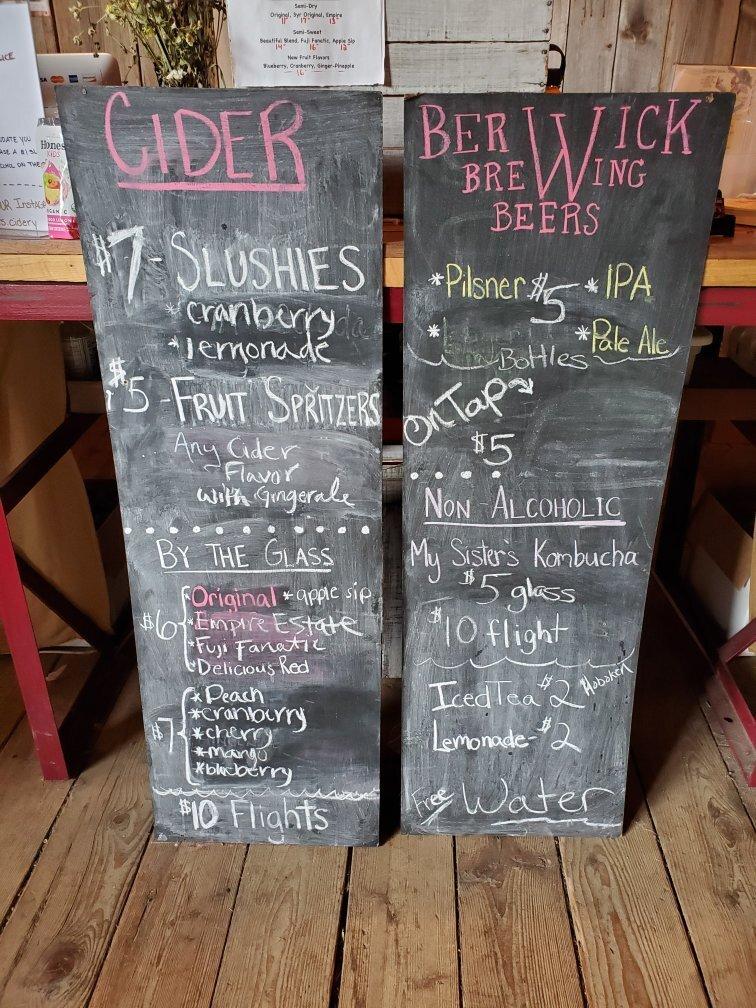 Semi-Dry
Original, 5yr Original, Empire
Semi-Sweet
Beautiful Blend, Fuji Fanatic, Apple Sip
14" 16" 12"
New Fruit Flavors
Blueberry, Cranberry, Ginger-Pineapple
16"
VISA
Hones
KIDS
CIDER
$7 - SLUSHIES
*cranberry
*lemonade
$5 - FRUIT SPRITZERS
Any Cider
Flavor
with Gingerale
BY THE GLASS
$6 {
*Original *apple sip
*Empire Estate
*Fuji Fanatic
*Delicious Red
$7 {
*Peach
*cranberry
*cherry
*mango
*blueberry
$10 Flights
BERWICK
BREWING
BEERS
*Pilsner $5 *IPA
* *Pale Ale
Bottles
On Tap
$5
NON-ALCOHOLIC
My Sister's Kombucha
$5 glass
$10 flight
Iced Tea $2 Hoboken
Lemonade - $2
Free Water